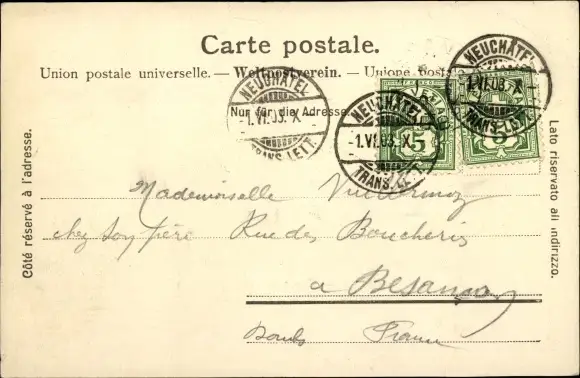 Carte postale.
Union postale universelle. — Weltpostverein. — Unione postale
Nur für die Adresse.
NEUCHÂTEL
-1.VI.03.X-
TRANS. LETT.
NEUCHÂTEL
-1.VI.03.X-
TRANS. LETT.
NEUCHÂTEL
-1.VI.03.X-
TRANS. LETT.
5
5
Côté réservé à l'adresse.
Lato riservato all'indirizzo.
Mademoiselle Vuillermoz
chez son père Rue des Boucheries
à Besançon
Doubs France